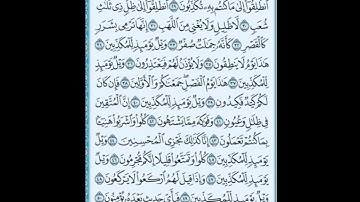 ٱنطَلِقُوٓا۟ إِلَىٰ مَا كُنتُم بِهِۦ تُكَذِّبُونَ ٢٩ ٱنطَلِقُوٓا۟ إِلَىٰ ظِلٍّ ذِى ثَلَٰثِ
شُعَبٍ ٣٠ لَّا ظَلِيلٍ وَلَا يُغْنِى مِنَ ٱللَّهَبِ ٣١ إِنَّهَا تَرْمِى بِشَرَرٍ
كَٱلْقَصْرِ ٣٢ كَأَنَّهُۥ جِمَٰلَتٌ صُفْرٌ ٣٣ وَيْلٌ يَوْمَئِذٍ لِّلْمُكَذِّبِينَ ٣٤
هَٰذَا يَوْمُ لَا يَنطِقُونَ ٣٥ وَلَا يُؤْذَنُ لَهُمْ فَيَعْتَذِرُونَ ٣٦ وَيْلٌ يَوْمَئِذٍ
لِّلْمُكَذِّبِينَ ٣٧ هَٰذَا يَوْمُ ٱلْفَصْلِ جَمَعْنَٰكُمْ وَٱلْأَوَّلِينَ ٣٨ فَإِن كَانَ
لَكُمْ كَيْدٌ فَكِيدُونِ ٣٩ وَيْلٌ يَوْمَئِذٍ لِّلْمُكَذِّبِينَ ٤٠ إِنَّ ٱلْمُتَّقِينَ
فِى ظِلَٰلٍ وَعُيُونٍ ٤١ وَفَوَٰكِهَ مِمَّا يَشْتَهُونَ ٤٢ كُلُوا۟ وَٱشْرَبُوا۟ هَنِيٓـًٔۢا
بِمَا كُنتُمْ تَعْمَلُونَ ٤٣ إِنَّا كَذَٰلِكَ نَجْزِى ٱلْمُحْسِنِينَ ٤٤ وَيْلٌ
يَوْمَئِذٍ لِّلْمُكَذِّبِينَ ٤٥ كُلُوا۟ وَتَمَتَّعُوا۟ قَلِيلًا إِنَّكُم مُّجْرِمُونَ ٤٦ وَيْلٌ
يَوْمَئِذٍ لِّلْمُكَذِّبِينَ ٤٧ وَإِذَا قِيلَ لَهُمُ ٱرْكَعُوا۟ لَا يَرْكَعُونَ ٤٨
وَيْلٌ يَوْمَئِذٍ لِّلْمُكَذِّبِينَ ٤٩ فَبِأَىِّ حَدِيثٍۭ بَعْدَهُۥ يُؤْمِنُونَ ٥٠